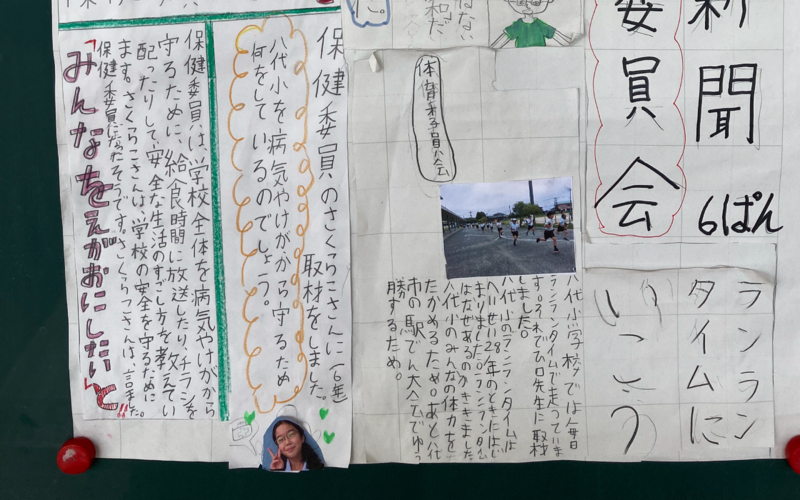 新聞
6ぱん
委員会
ランラン
タイムに
ついて
体育委員会
八代小学校では毎日
ランランタイムで走っていま
す。それでヒロ先生に取材
しました。
八代小のランランタイムは
へいせい28年のときにはじ
まりました。ランランタイム
はなぜあるのかききました。
八代小のみんなの体力を
たかめるため。あと八代
市の駅でん大会でゆう
勝するため。
保健委員のさくらこさんに(6年)
取材をしました。
八代小を病気やけがから守るため
何をしているのでしょう。
保健委員は、学校全体を病気やけがから
守るために、給食時間に放送したり、チラシを
配ったりして、安全な生活のすごし方を教えてい
ます。さくらこさんは、学校の安全を守るために
保健委員になったそうです。さくらこさんは、
「みんなをえがおにしたい」と
言いました。